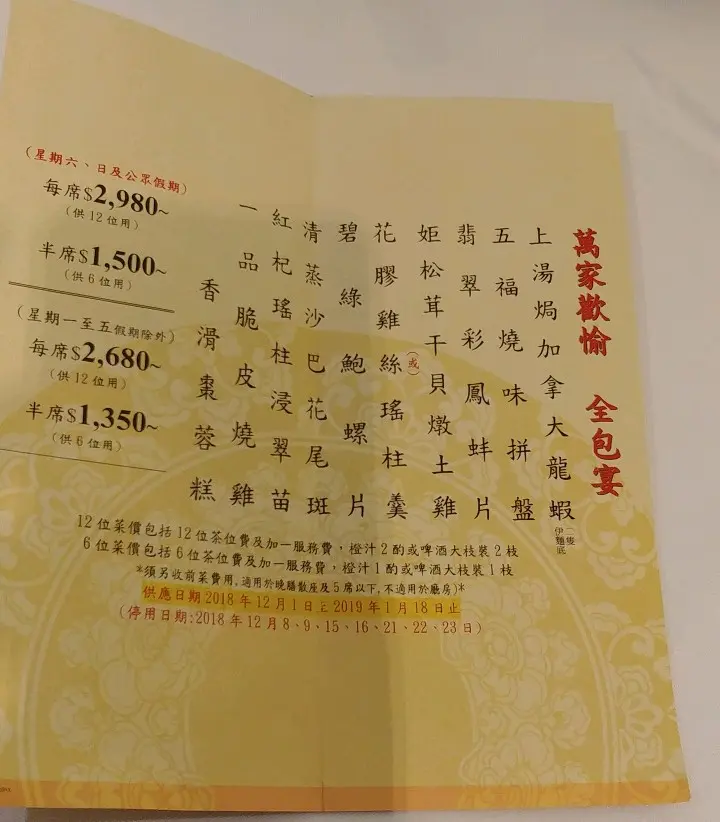 萬家歡愉 全包宴
上湯焗加拿大龍蝦
二隻
伊麵底
五福燒味拼盤
翡翠彩鳳蚌片
姬松茸干貝燉土雞
(或)
花膠雞絲瑤柱羹
碧綠鮑螺片
清蒸沙巴花尾斑
紅杞瑤柱浸翠苗
一品脆皮燒雞
香滑棗蓉糕
(星期六、日及公眾假期)
每席$2,980~
(供12位用)
半席$1,500~
(供6位用)
(星期一至五假期除外)
每席$2,680~
(供12位用)
半席$1,350~
(供6位用)
12位菜價包括12位茶位費及加一服務費,橙汁2酌或啤酒大枝裝2枝
6位菜價包括6位茶位費及加一服務費,橙汁1酌或啤酒大枝裝1枝
*須另收前菜費用,適用於晚膳散座及5席以下,不適用於廳房)*
供應日期2018年12月1日至2019年1月18日止
(停用日期:2018年12月8、9、15、16、21、22、23日)